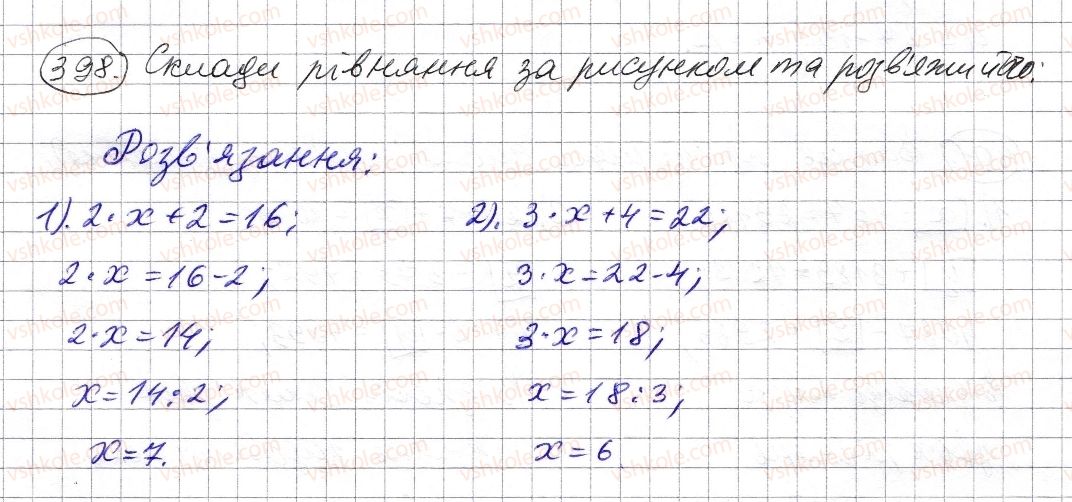 398. Склади рівняння за рисунком та розв'яжи його:
Розв'язання:
1). 2·x+2=16;
2·x=16-2;
2·x=14;
x=14:2;
x=7.
2). 3·x+4=22;
3·x=22-4;
3·x=18;
x=18:3;
x=6
vshkole.com